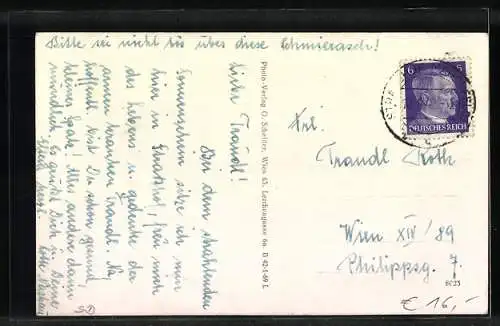 Bitte sei nicht bös über diese Schmiererei!
Liebe Traudl!
Bei dem strahlenden
Sonnenschein sitze ich nun
hier in , freu mich
des Lebens u. gedenke der
armen kranken Traudl. Na,
hoffentl. bist Du schon gesund,
kleiner Spatz! Alles andere dann
mündlich. Es grüßt Dich u. Deine
Eltern herzl.
Photo-Verlag O. Schreiber, Wien 83, Lerchengasse 6a D 42-1-69 L
6 6
DEUTSCHES REICH
Frl.
Traudl Roth
Wien XIV/89
Philippsg. 7.
6023
€ 16,-
SD